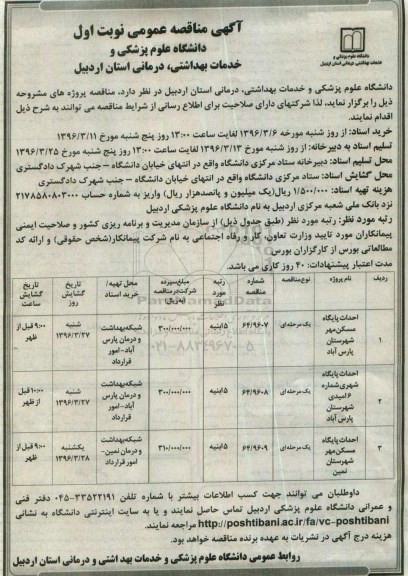 آگهی مناقصه عمومی نوبت اول
دانشگاه علوم پزشکی و
خدمات بهداشتی، درمانی استان اردبیل
دانشگاه علوم پزشکی و
خدمات بهداشتی درمانی استان اردبیل
دانشگاه علوم پزشکی و خدمات بهداشتی، درمانی استان اردبیل در نظر دارد، مناقصه پروژه های مشروحه
ذیل را برگزار نماید، لذا شرکتهای دارای صلاحیت برای اطلاع رسانی از شرایط مناقصه می توانند به شرح ذیل
اقدام نمایند.
خرید اسناد: از روز شنبه مورخه ۱۳۹۶/۳/۶ لغایت ساعت ۱۳:۰۰ روز پنج شنبه مورخ ۱۳۹۶/۳/۱۱
تسلیم اسناد به دبیرخانه: از روز شنبه مورخ ۱۳۹۶/۳/۱۳ لغایت ساعت ۱۳:۰۰ روز پنج شنبه مورخ ۱۳۹۶/۳/۲۵
محل تسلیم اسناد: دبیرخانه ستاد مرکزی دانشگاه واقع در انتهای خیابان دانشگاه – جنب شهرک دادگستری
محل گشایش اسناد: ستاد مرکزی دانشگاه واقع در انتهای خیابان دانشگاه – جنب شهرک دادگستری
هزینه تهیه اسناد: ۱/۵۰۰/۰۰۰ ریال(یک میلیون و پانصدهزار ریال) واریز به شماره حساب ۲۱۷۸۵۸۰۸۰۳۰۰۰
نزد بانک ملی شعبه مرکزی اردبیل به نام دانشگاه علوم پزشکی اردبیل
رتبه مورد نظر: رتبه مورد نظر (طبق جدول ذیل) از سازمان مدیریت و برنامه ریزی کشور و صلاحیت ایمنی
پیمانکاران مورد تایید وزارت تعاون، کار و رفاه اجتماعی به نام شرکت پیمانکار(شخص حقوقی) و ارائه کد
مطالعاتی بورس از کارگزاران بورس
مدت اعتبار پیشنهادات: ۴۰ روز کاری می باشد.
ردیف | نام پروژه | نوع مناقصه | شماره مناقصه | رتبه مورد نظر | مبلغ سپرده شرکت در مناقصه (به ریال) | محل تهیه/خرید اسناد | تاریخ گشایش روز | تاریخ گشایش ساعت
۱ | احداث پایگاه مسکن مهر شهرستان پارس آباد | یک مرحله‌ای | ۶۴/۹۶۰۷ | ۵ ابنیه | ۳۰۰/۰۰۰/۰۰۰ | شبکه بهداشت و درمان پارس آباد-امور قرارداد | شنبه ۱۳۹۶/۳/۲۷ | ۹:۰۰ قبل از ظهر
۲ | احداث پایگاه شهری شماره ۶ امیدی شهرستان پارس آباد | یک مرحله‌ای | ۶۴/۹۶۰۸ | ۵ ابنیه | ۳۰۰/۰۰۰/۰۰۰ | شبکه بهداشت و درمان پارس آباد-امور قرارداد | شنبه ۱۳۹۶/۳/۲۷ | ۱۰:۰۰ قبل از ظهر
۳ | احداث پایگاه مسکن مهر شهرستان نمین | یک مرحله‌ای | ۶۴/۹۶۰۹ | ۵ ابنیه | ۳۱۰/۰۰۰/۰۰۰ | شبکه بهداشت و درمان نمین-امور قرارداد | یکشنبه ۱۳۹۶/۳/۲۸ | ۹:۰۰ قبل از ظهر
ParsNamadData
۰۲۱-۸۸۳۴۹۶۷۰-۵
داوطلبان می توانند جهت کسب اطلاعات بیشتر با شماره تلفن ۳۳۵۲۲۱۹۱-۰۴۵ دفتر فنی
و عمرانی دانشگاه علوم پزشکی اردبیل تماس حاصل نمایند و یا به سایت اینترنتی دانشگاه به نشانی
http://poshtibani.ac.ir/fa/vc-poshtibani مراجعه نمایند.
هزینه درج آگهی در نشریات به عهده برنده مناقصه خواهد بود.
روابط عمومی دانشگاه علوم پزشکی و خدمات بهداشتی و درمانی استان اردبیل